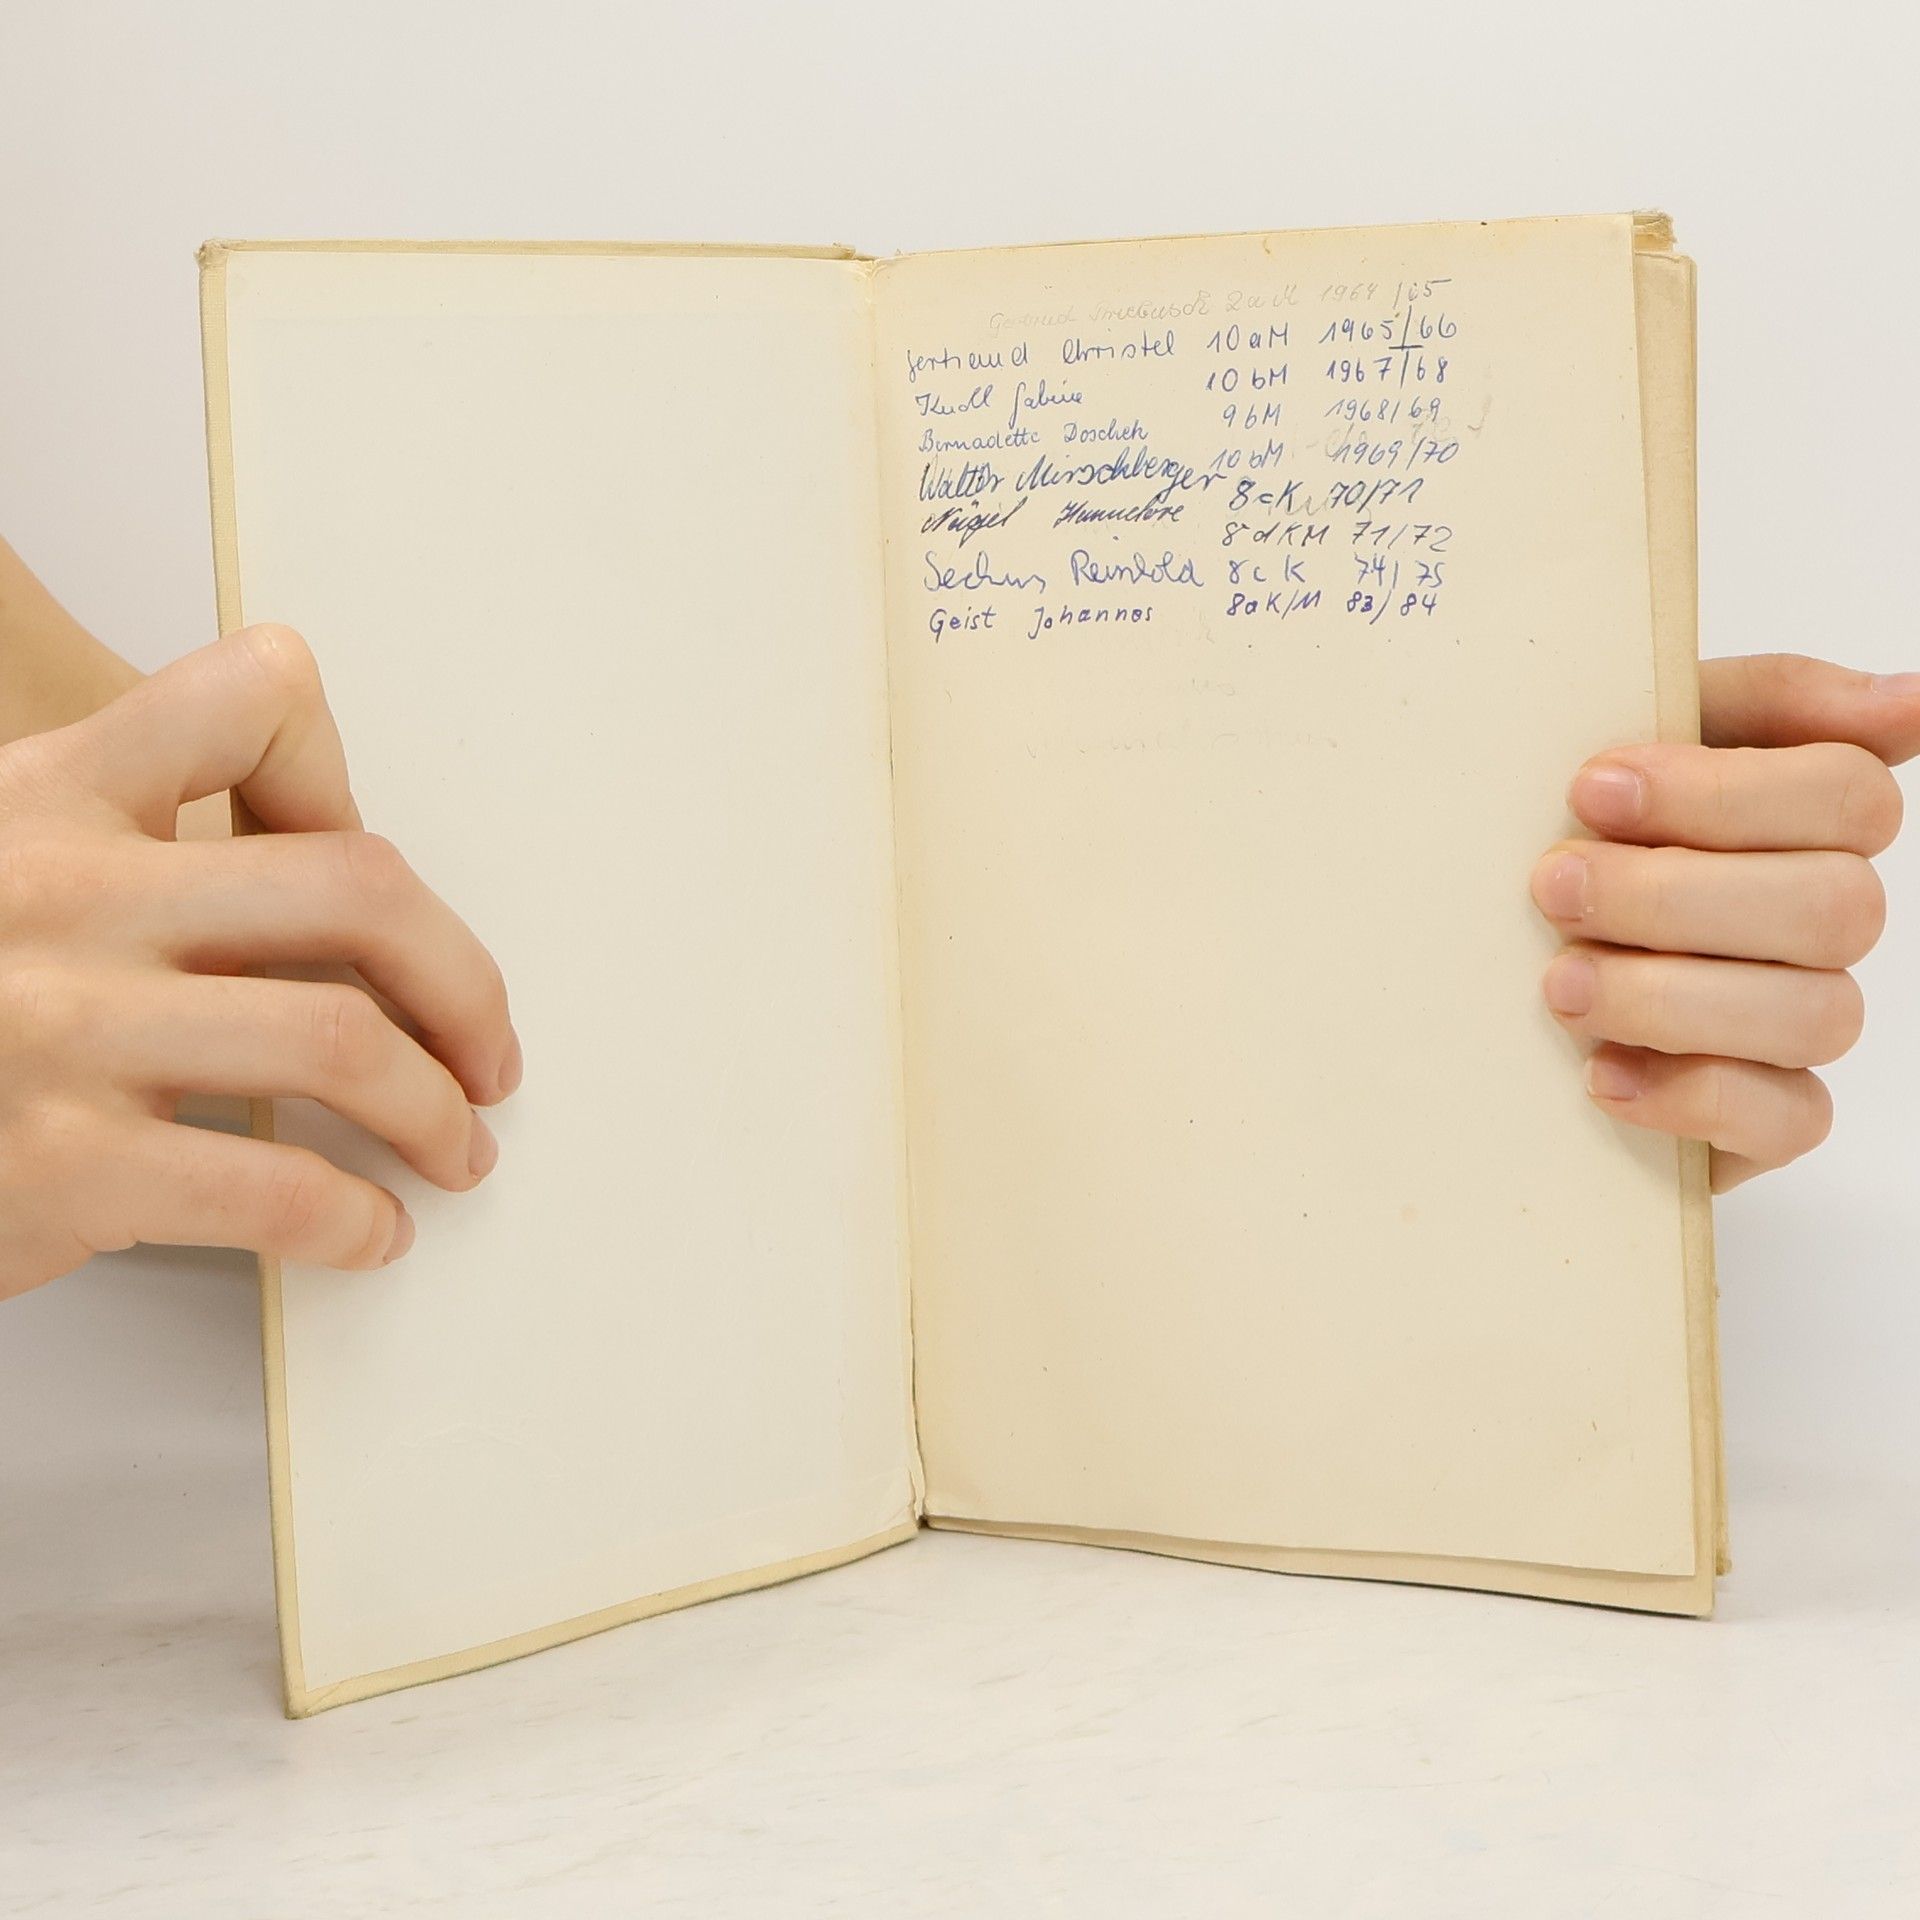 Gertrud 1964/65
Christel 10aM 1965/66
Knoll Sabine 10bM 1967/68
Bernadette Doschek 9bM 1968/69
Walter Mirschberger 10bM 1969/70
Nügel Hannelore 8cK 70/71
8dKM 71/72
Reinhold 8c K 74/75
Geist Johannes 8aK/M 83/84